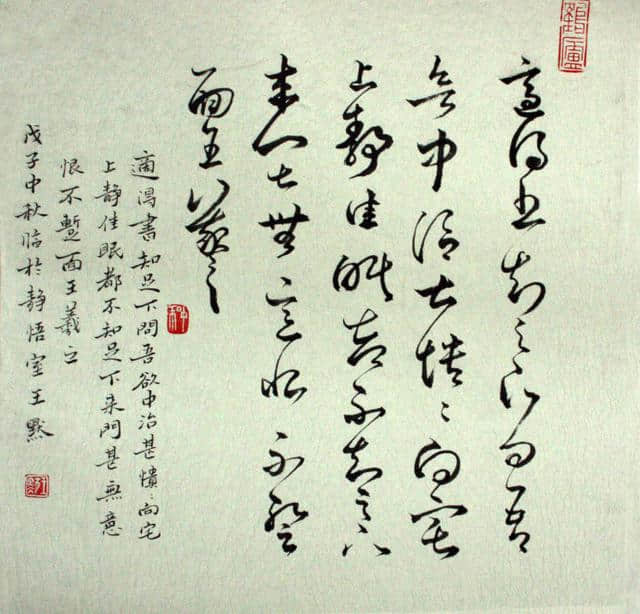 鶴廬
適得書知足下問吾
欲中治甚憒〻向宅
上靜佳眠都不知足下
來門甚無意恨不暫
面王羲之
適得書知足下問吾欲中治甚憒〻向宅
上靜佳眠都不知足下來門甚無意
恨不暫面王羲之
戊子中秋臨於靜悟室王默